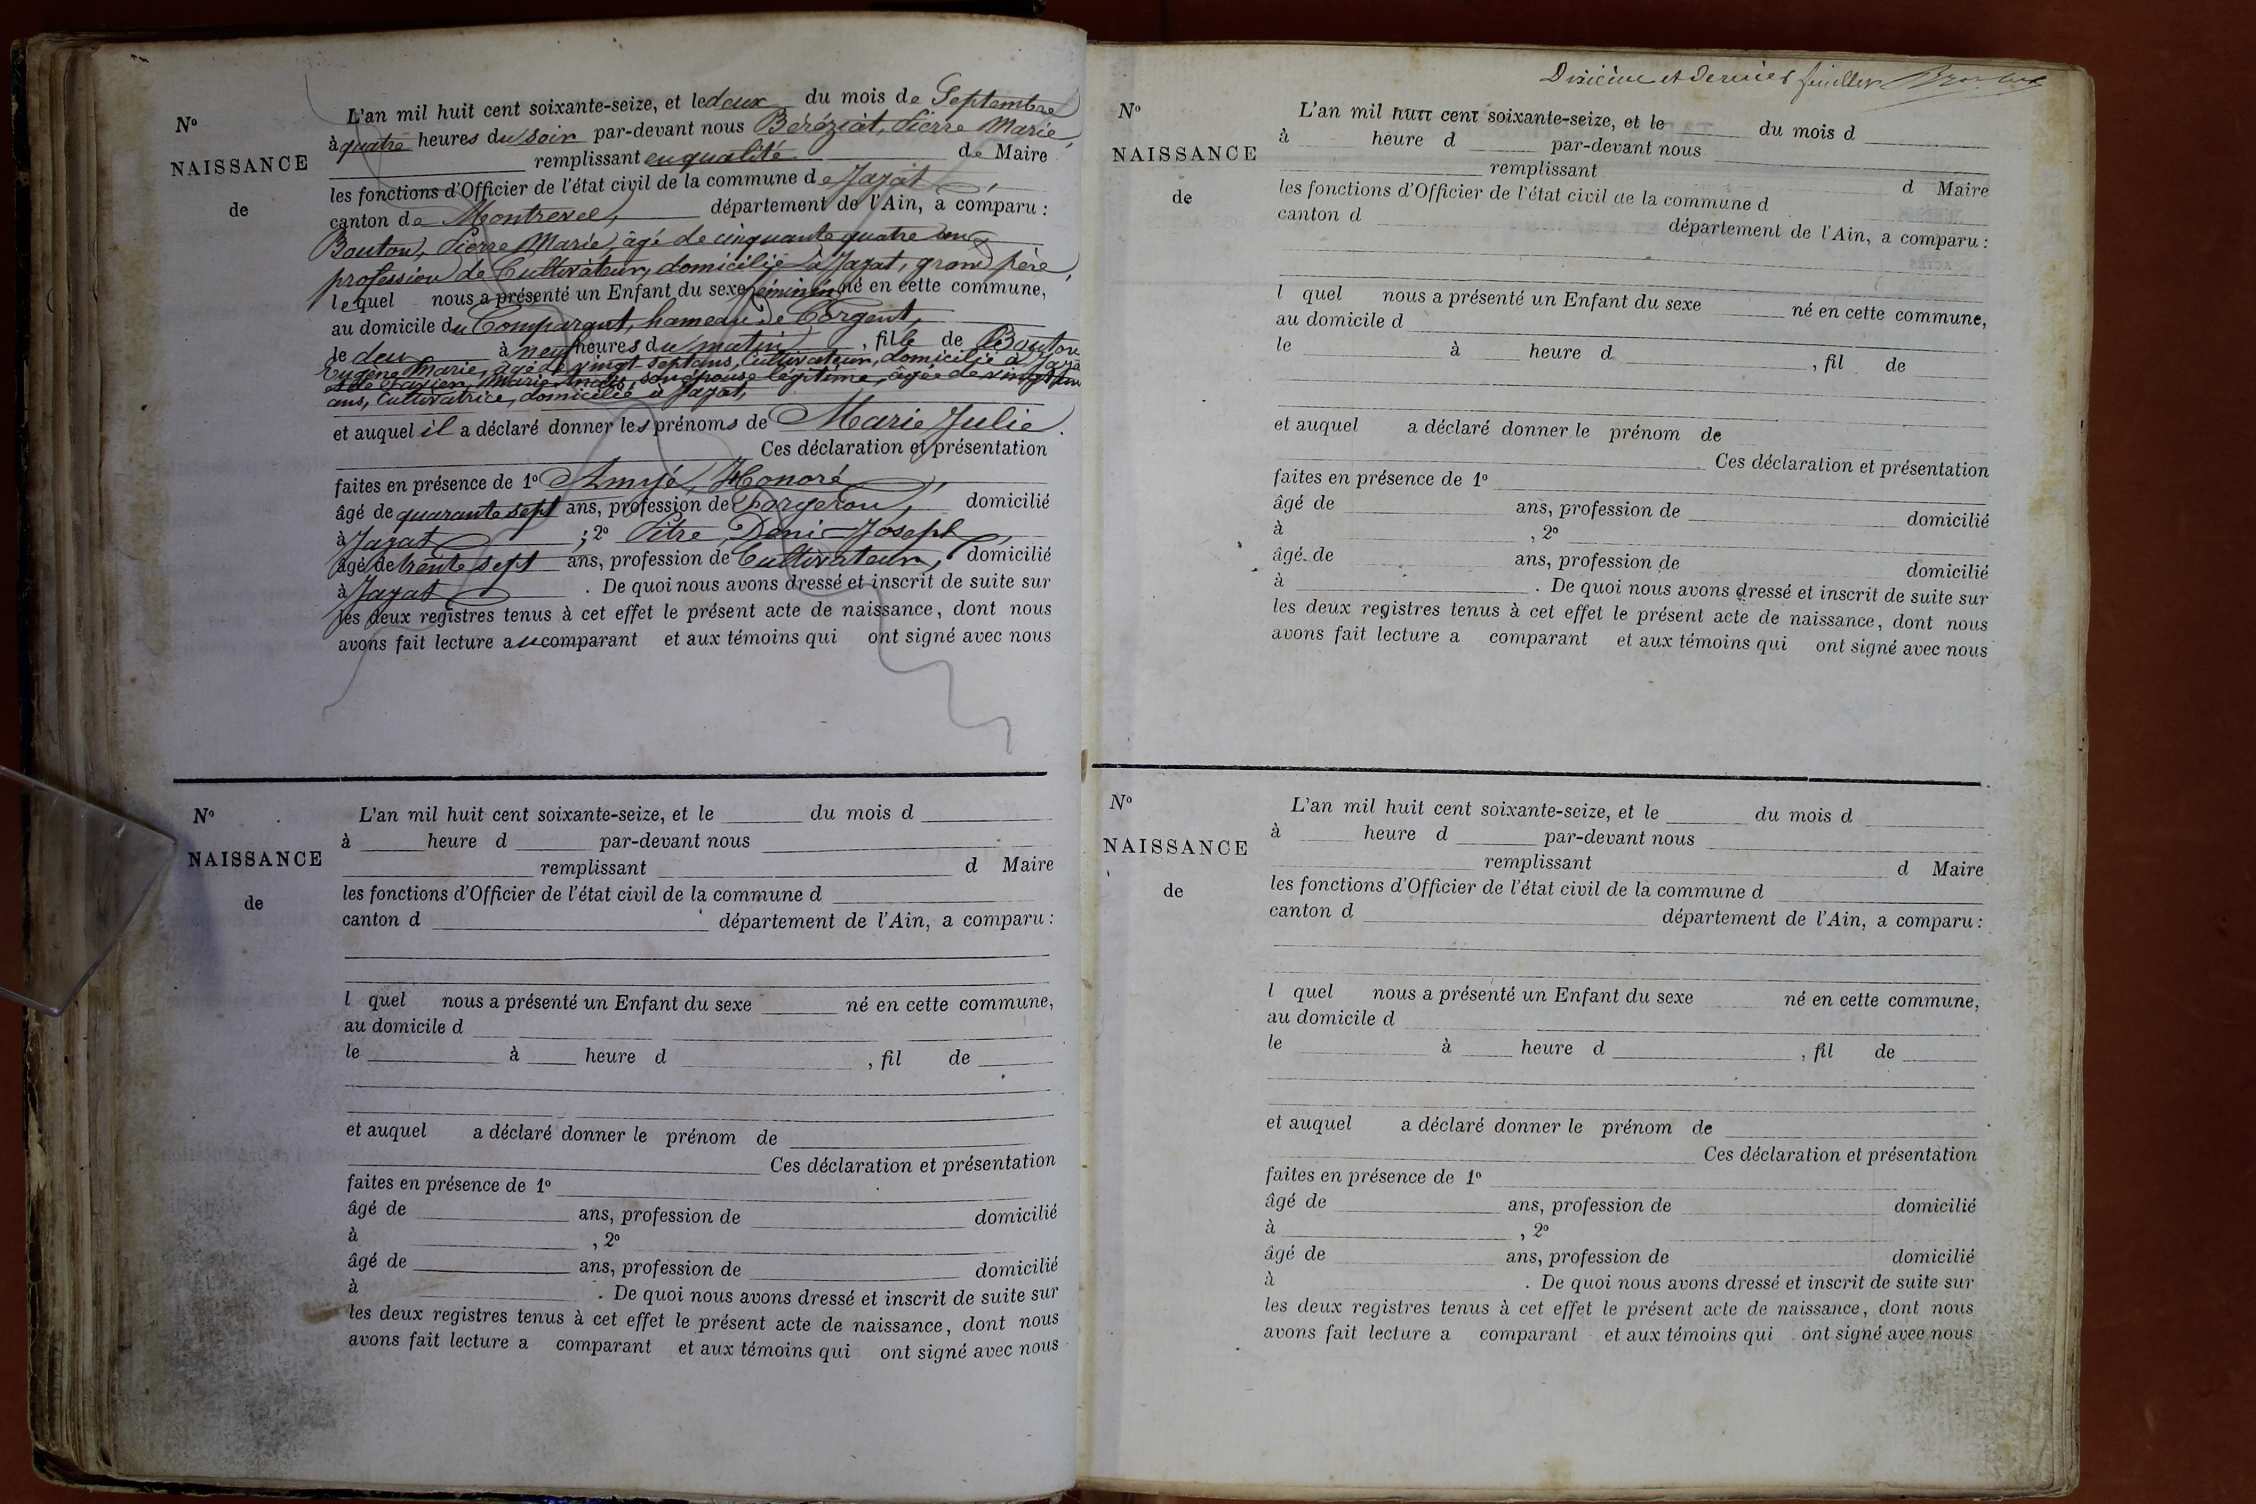 N°
NAISSANCE
de
L'an mil huit cent soixante-seize, et le deux du mois de Septembre
à quatre heures du soir par-devant nous Béréziat, Pierre Marie,
remplissant en qualité de Maire
les fonctions d'Officier de l'état civil de la commune de Jayat,
canton de Montrevel, département de l'Ain, a comparu :
Bouton, Pierre Marie, âgé de cinquante quatre ans,
profession de Cultivateur, domicilié à Jayat, grand père,
lequel nous a présenté un Enfant du sexe féminin né en cette commune,
au domicile du Comparant, hameau de Corgent,
le deux à neuf heures du matin, fille de Bouton
Eugène Marie, âgé de vingt sept ans, Cultivateur, domicilié à Jayat
et de Marie son épouse légitime, âgée de vingt
ans, Cultivatrice, domiciliée à Jayat,
et auquel il a déclaré donner les prénoms de Marie Julie.
Ces déclaration et présentation
faites en présence de 1° Honoré,
âgé de quarante sept ans, profession de Forgeron, domicilié
à Jayat ; 2° Pitre, Deni-Joseph,
âgé de trente sept ans, profession de Cultivateur, domicilié
à Jayat . De quoi nous avons dressé et inscrit de suite sur
les deux registres tenus à cet effet le présent acte de naissance, dont nous
avons fait lecture au comparant et aux témoins qui ont signé avec nous
N°
NAISSANCE
de
L'an mil huit cent soixante-seize, et le du mois d
à heure d par-devant nous
remplissant d Maire
les fonctions d'Officier de l'état civil de la commune d
canton d département de l'Ain, a comparu :
l quel nous a présenté un Enfant du sexe né en cette commune,
au domicile d
le à heure d , fil de
et auquel a déclaré donner le prénom de
Ces déclaration et présentation
faites en présence de 1°
âgé de ans, profession de domicilié
à , 2°
âgé de ans, profession de domicilié
à . De quoi nous avons dressé et inscrit de suite sur
les deux registres tenus à cet effet le présent acte de naissance, dont nous
avons fait lecture a comparant et aux témoins qui ont signé avec nous
Dixième et dernier feuillet
N°
NAISSANCE
de
L'an mil huit cent soixante-seize, et le du mois d
à heure d par-devant nous
remplissant d Maire
les fonctions d'Officier de l'état civil de la commune d
canton d département de l'Ain, a comparu :
l quel nous a présenté un Enfant du sexe né en cette commune,
au domicile d
le à heure d , fil de
et auquel a déclaré donner le prénom de
Ces déclaration et présentation
faites en présence de 1°
âgé de ans, profession de domicilié
à , 2°
âgé de ans, profession de domicilié
à . De quoi nous avons dressé et inscrit de suite sur
les deux registres tenus à cet effet le présent acte de naissance, dont nous
avons fait lecture a comparant et aux témoins qui ont signé avec nous
N°
NAISSANCE
de
L'an mil huit cent soixante-seize, et le du mois d
à heure d par-devant nous
remplissant d Maire
les fonctions d'Officier de l'état civil de la commune d
canton d département de l'Ain, a comparu :
l quel nous a présenté un Enfant du sexe né en cette commune,
au domicile d
le à heure d , fil de
et auquel a déclaré donner le prénom de
Ces déclaration et présentation
faites en présence de 1°
âgé de ans, profession de domicilié
à , 2°
âgé de ans, profession de domicilié
à . De quoi nous avons dressé et inscrit de suite sur
les deux registres tenus à cet effet le présent acte de naissance, dont nous
avons fait lecture a comparant et aux témoins qui ont signé avec nous